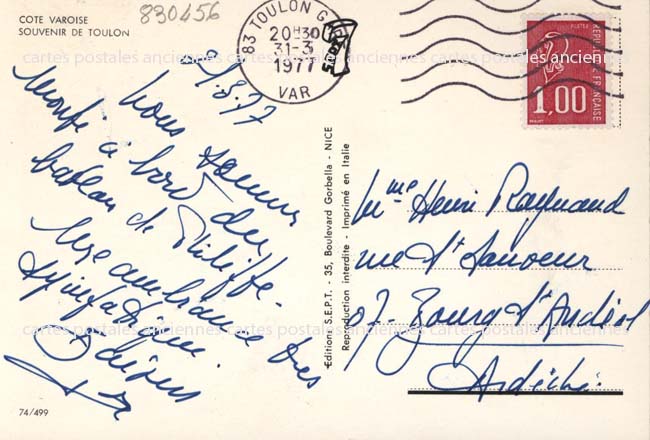 COTE VAROISE
SOUVENIR DE TOULON
830456
83 TOULON
20H30
31-3
1977
VAR
REPUBLIQUE FRANÇAISE
1,00
cartes postales anciennes cartes postales anciennes cartes postales anciennes
Nous sommes
à bord du
bateau de Philippe.
Une ambiance très
sympathique.
Editions S.E.P.T. - 35, Boulevard Gorbella - NICE
Reproduction interdite - Imprimé en Italie
Mme Henri Raynaud
rue St Sauveur
07- Bourg St Andéol
Ardèche
cartes postales anciennes cartes postales anciennes cartes postales anciennes
74/499